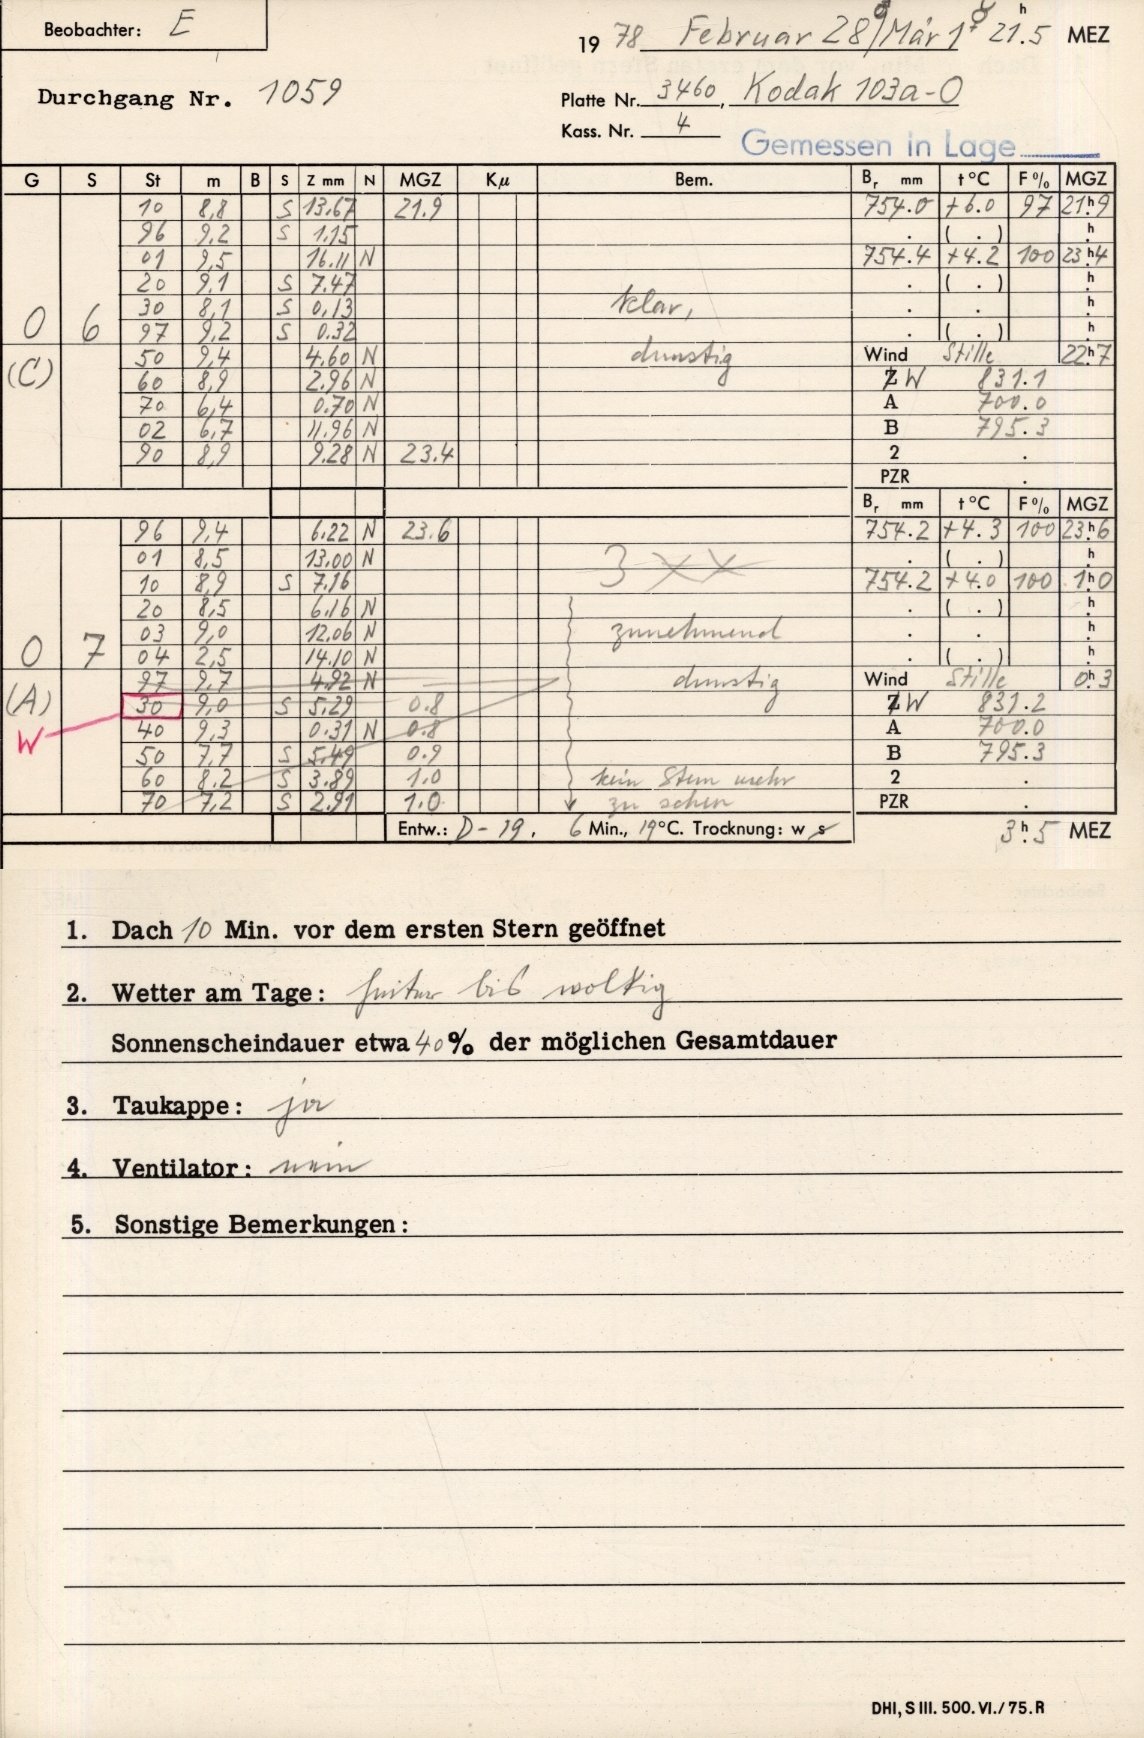 Beobachter: E
19 78 Februar 28♂/Mär 1☿ 21.5 h MEZ
Durchgang Nr. 1059
Platte Nr. 3460, Kodak 103a-O
Kass. Nr. 4
Gemessen in Lage
G S St m B S Z mm N MGZ Kμ Bem. Br mm t °C F% MGZ
10 8,8 S 13.67 21.9 754.0 +6.0 97 21h9
96 9,2 S 1.15 . ( . ) h
01 9,5 16.11 N 754.4 +4.2 100 23h4
20 9,1 S 7.47 . ( . ) h
30 8,1 S 0,13 klar, . . h
0 6 97 9,2 S 0.32 . ( . ) h
50 9,4 4.60 N dunstig Wind Stille 22h7
(C) 60 8,9 2.96 N Z W 831.1
70 6,4 0.70 N A 700.0
02 6,7 11.96 N B 795.3
90 8,9 9.28 N 23.4 2 .
PZR .
Br mm t °C F% MGZ
96 9,4 6.22 N 23.6 754.2 +4.3 100 23h6
01 8,5 13.00 N 3 XX . ( . ) h
10 8,9 S 7.16 754.2 +4.0 100 1h0
20 8,5 6.16 N . ( . ) h
03 9,0 12.06 N zunehmend . . h
0 7 04 2,5 14.10 N . ( . ) h
97 9,7 4.92 N dunstig Wind Stille 0h3
(A) 30 9,0 S 5.29 0.8 Z W 831.2
W 40 9,3 0.31 N 0.8 A 700.0
50 7,7 S 5.49 0.9 B 795.3
60 8.2 S 3.89 1.0 kein Stern mehr 2 .
70 7,2 S 2.91 1.0 zu sehen PZR .
Entw.: D-19, 6 Min., 19°C. Trocknung: w s 3h.5 MEZ
1. Dach 10 Min. vor dem ersten Stern geöffnet
2. Wetter am Tage: heiter bis wolkig
Sonnenscheindauer etwa 40% der möglichen Gesamtdauer
3. Taukappe: ja
4. Ventilator: nein
5. Sonstige Bemerkungen:
DHI, S III. 500. VI./75. R